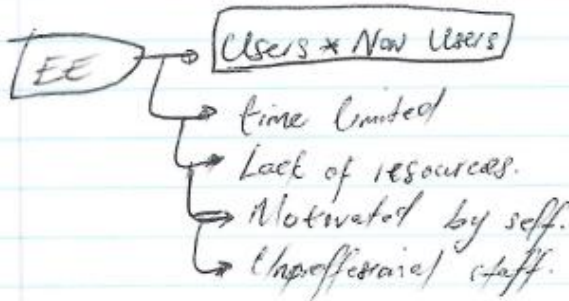 EE
Users * Non Users
time limited
Lack of resources.
Motivated by self.
Unproffesional staff.